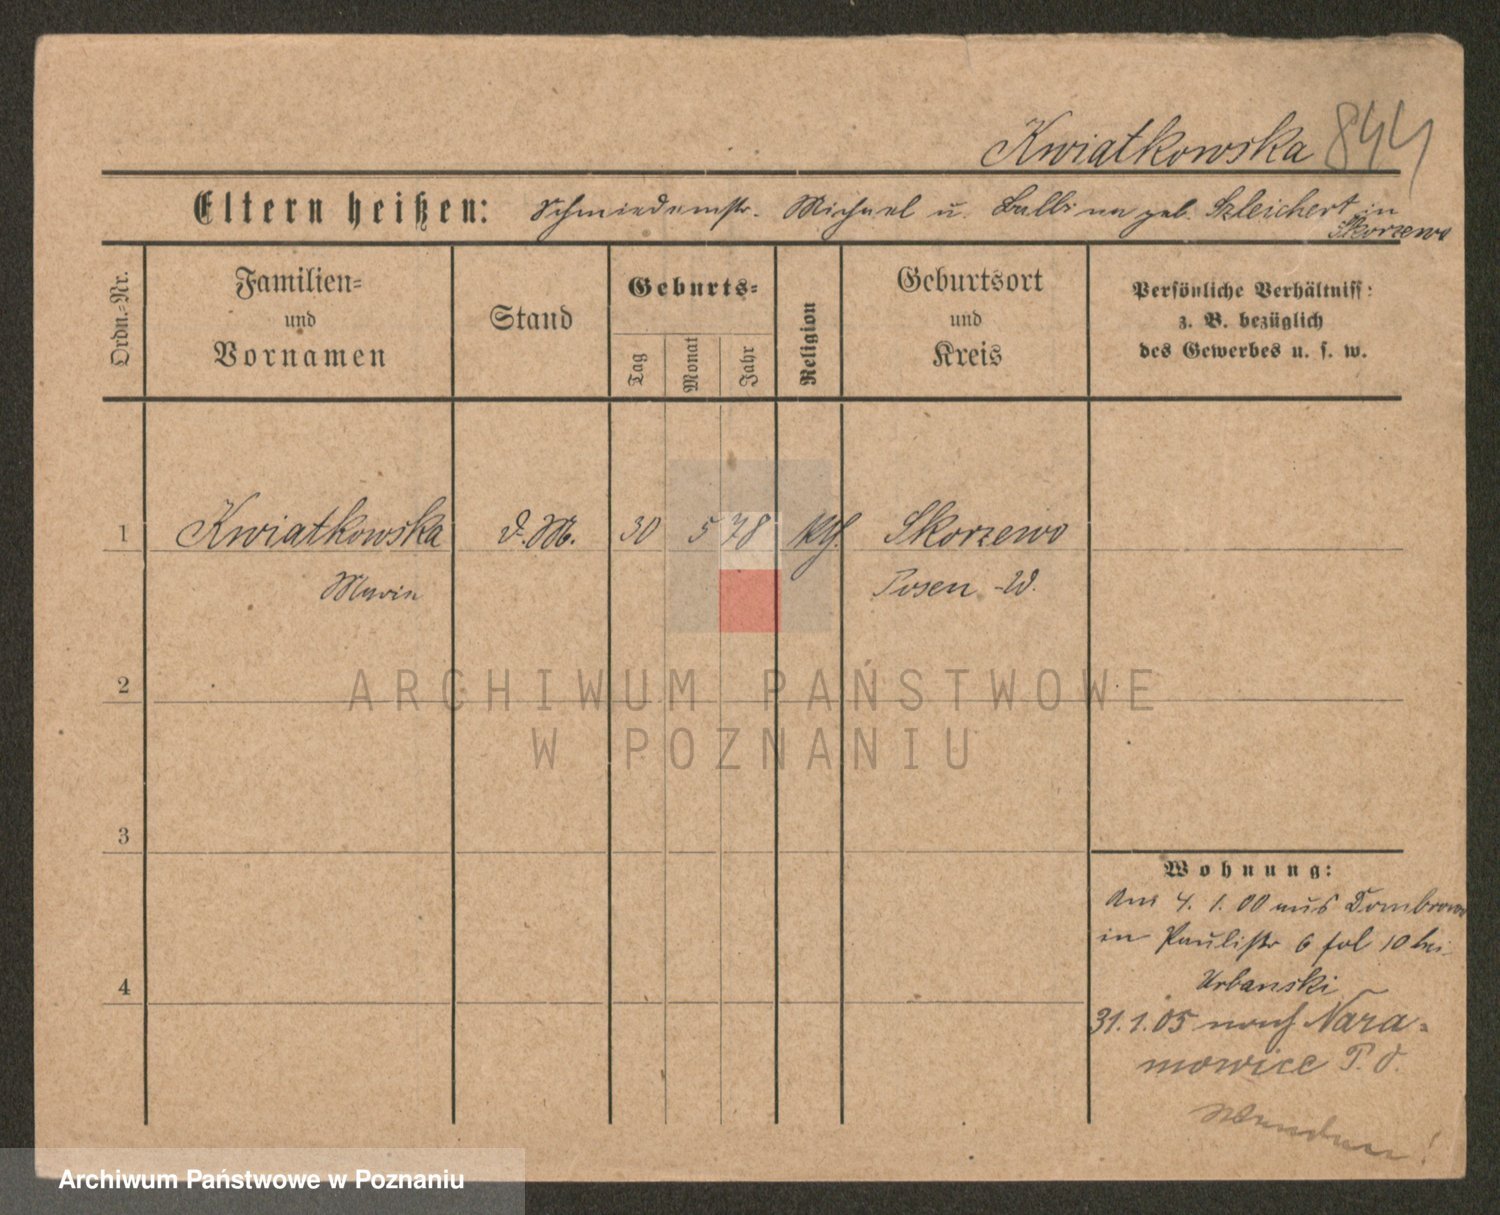 Kwiatkowska 844
Eltern heißen: Schmiedemstr. Michael u. Balbina geb. Szleichert in
Skorzewo
Ordn.-Nr.
Familien-
und
Vornamen
Stand
Geburts-
Tag
Monat
Jahr
Religion
Geburtsort
und
Kreis
Persönliche Verhältniss:
z. B. bezüglich
des Gewerbes u. s. w.
1 Kwiatkowska D.M. 30 5 78 kth. Skorzewo
Maria Posen -W.
2
3
4
Wohnung:
Am 4. 1. 00 aus Dombrowo
in Paulistr 6 fol 10 bei
Urbanski
31.1.05 nach Nara-
mowice P. O.
Wenden!
ARCHIWUM PAŃSTWOWE
W POZNANIU
Archiwum Państwowe w Poznaniu